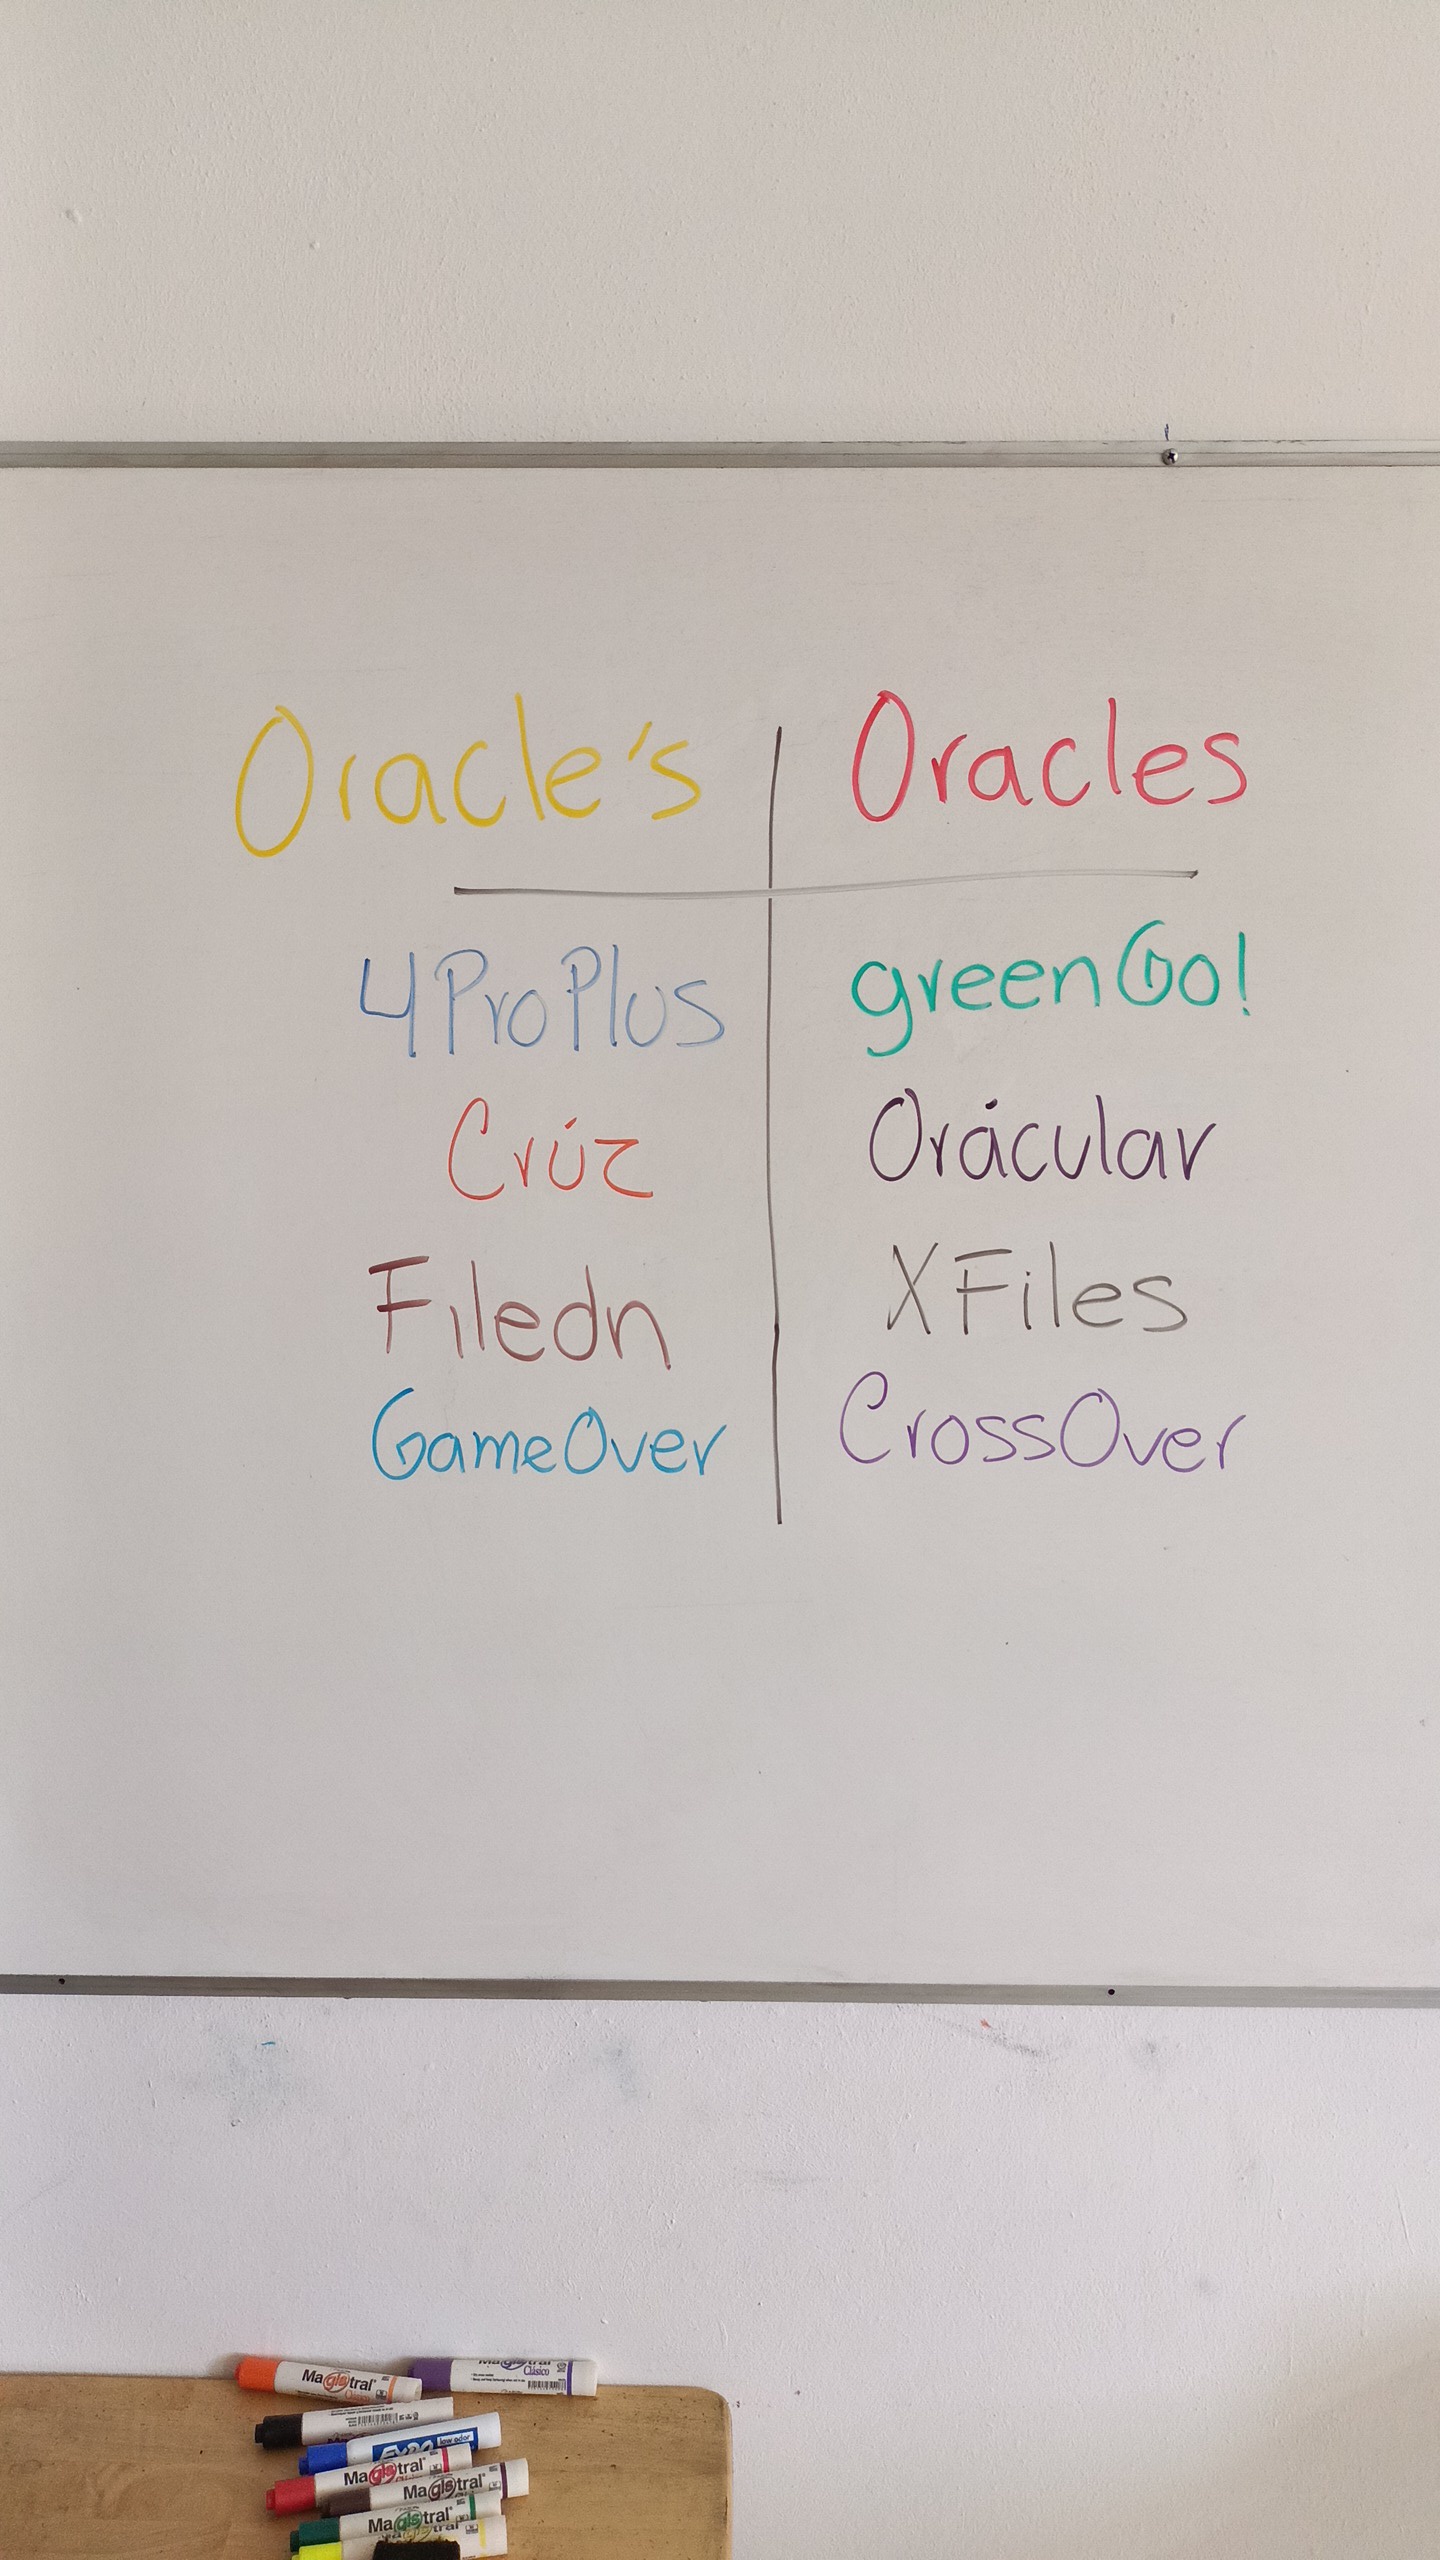 Oracle's Oracles
4ProPlus greenGo!
Crúz Orácular
Filedn XFiles
GameOver CrossOver
Magistral
Clásico
Magistral
Clásico
EXPO low odor
Magistral
Magistral
Magistral